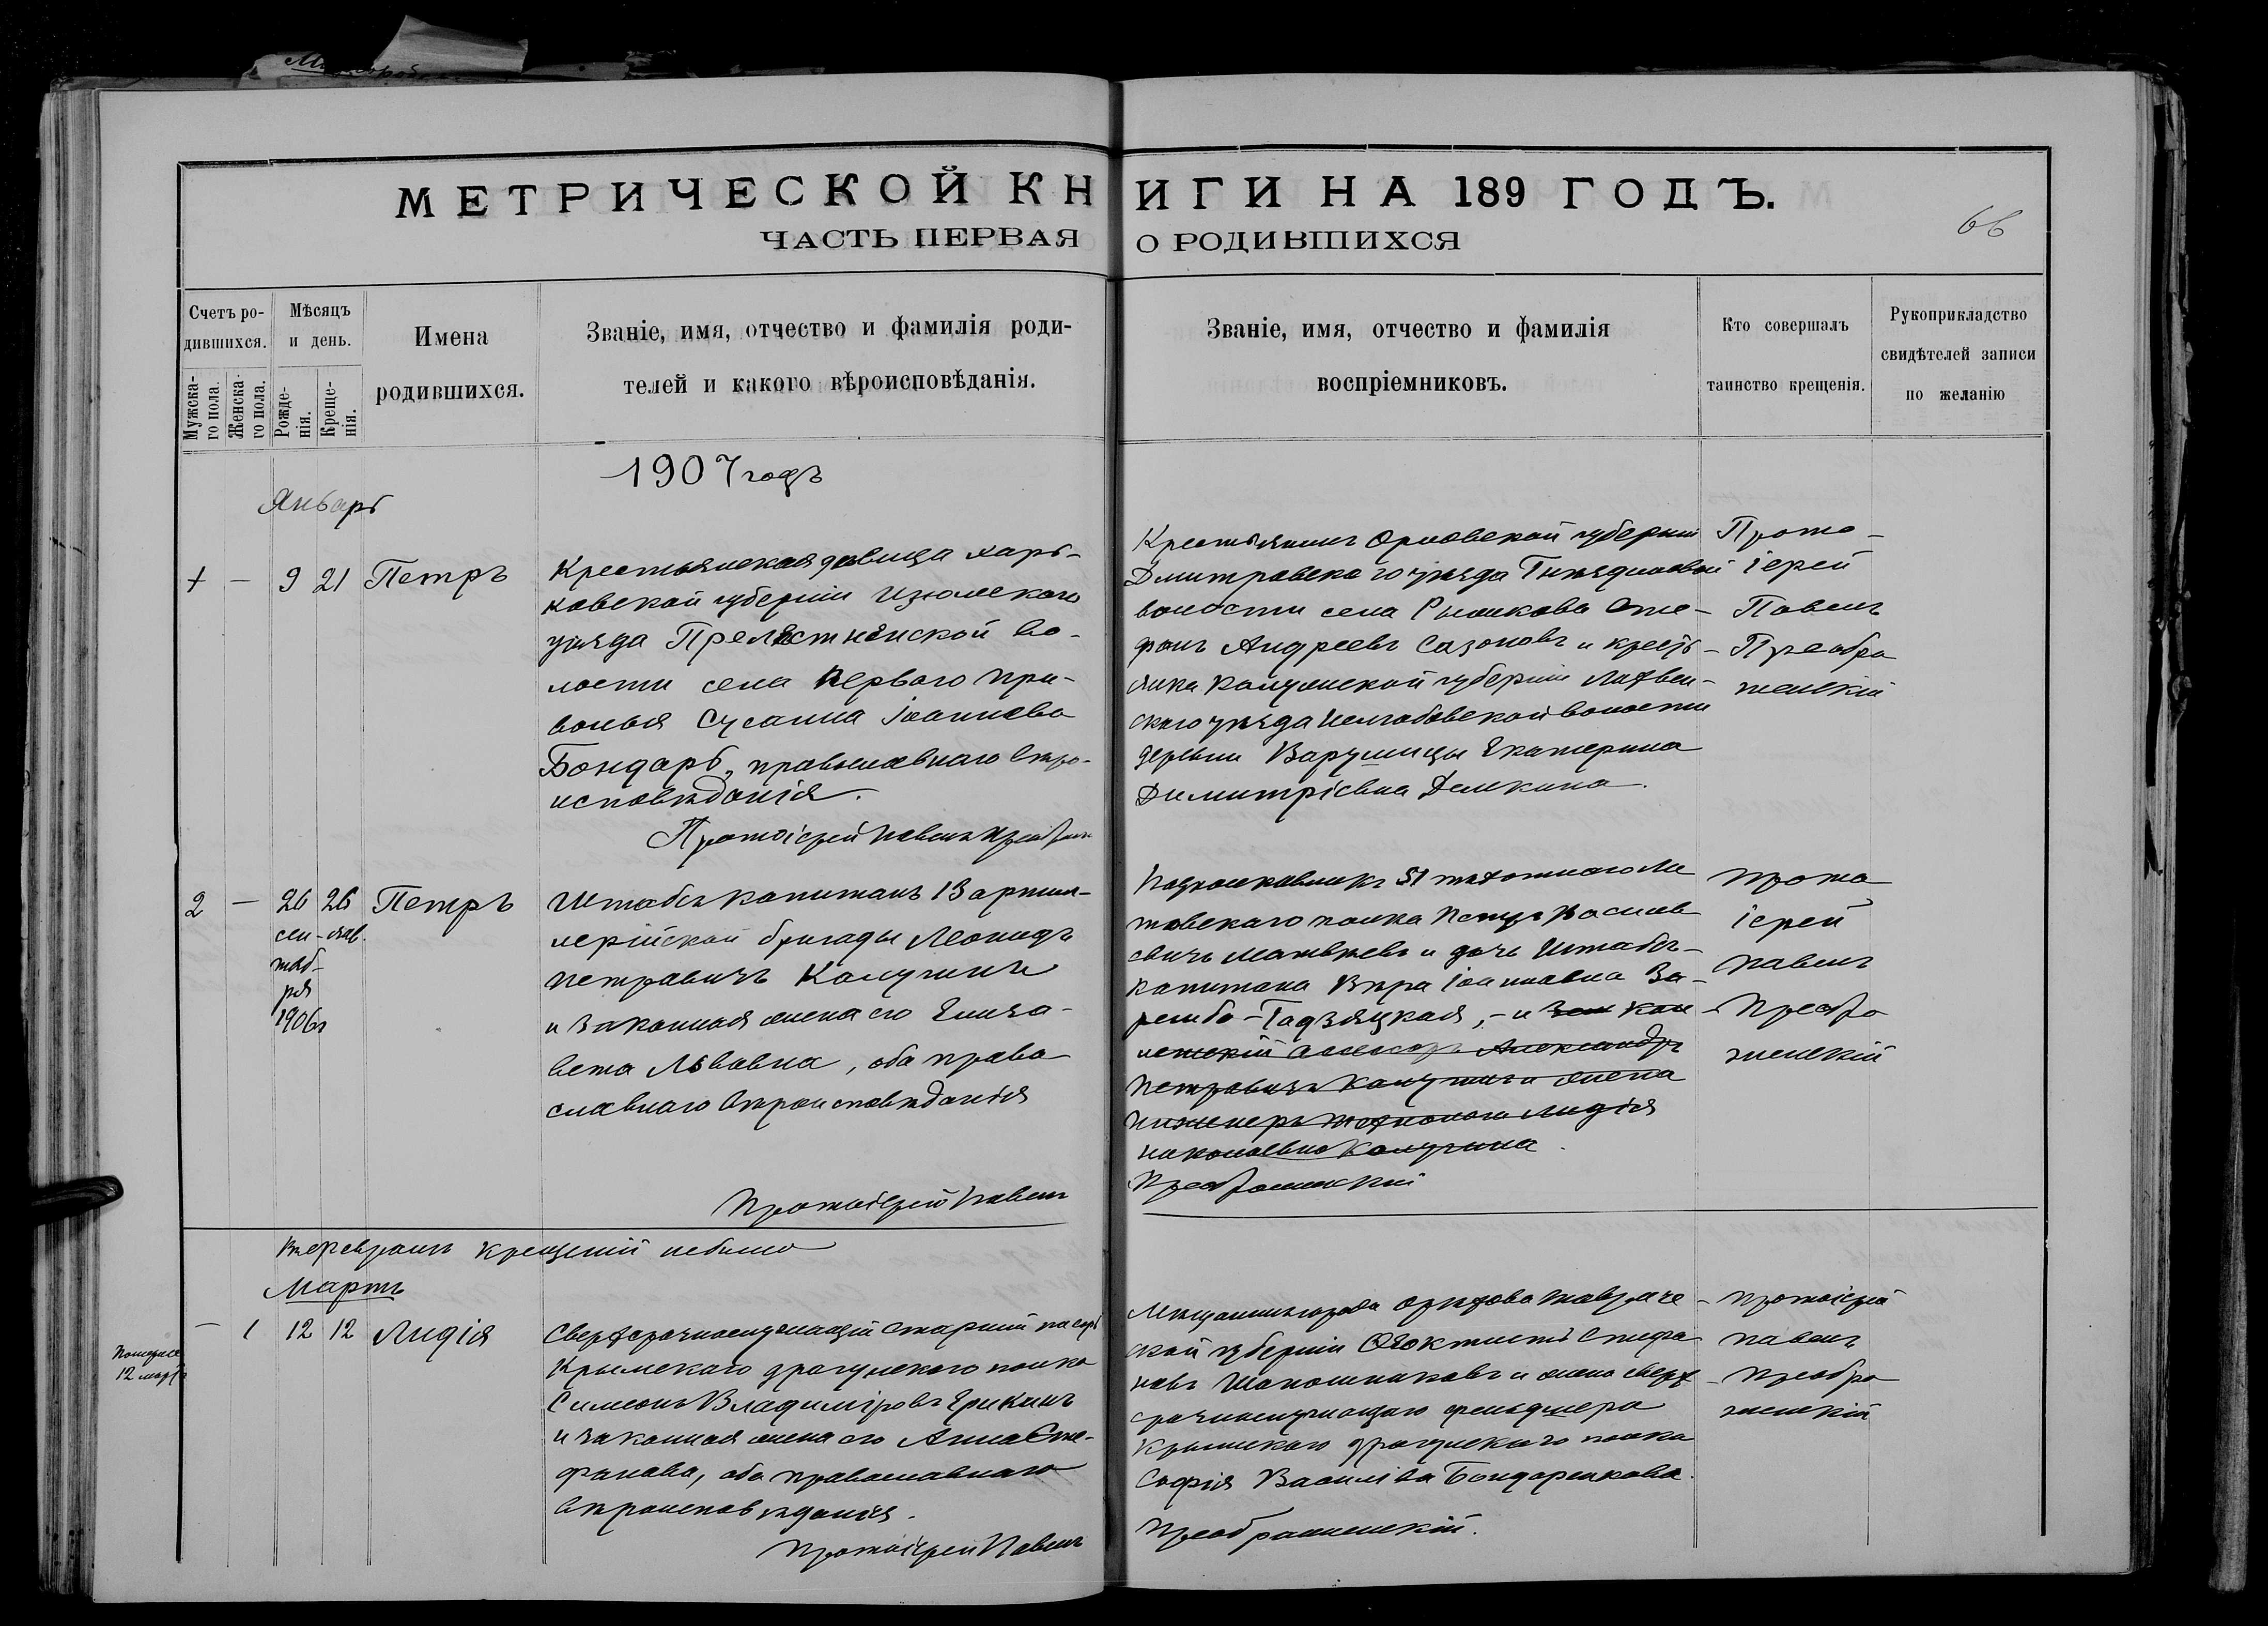 МЕТРИЧЕСКОЙ КНИГИ НА 189 ГОДЪ.
ЧАСТЬ ПЕРВАЯ О РОДИВШИХСЯ
66
Счетъ ро-
дившихся.
Мужска-
го пола.
Женска-
го пола.
Мѣсяцъ
и день.
Рожде-
нія.
Креще-
нія.
Имена
родившихся.
Званіе, имя, отчество и фамилія роди-
телей и какого вѣроисповѣданія.
Званіе, имя, отчество и фамилія
воспріемниковъ.
Кто совершалъ
таинство крещенія.
Рукоприкладство
свидѣтелей записи
по желанію
1907 годъ
Январь
1 — 9 21 Петръ
Крестьянская дѣвица Харь-
ковской губерніи Изюмскаго
уѣзда Прелестнянской во-
лости села Перваго При-
волья Сусанна Іоаннова
Бондарь, православнаго вѣро-
исповѣданія.
Протоіерей Павелъ
Крестьянинъ Орловской губерніи
Дмитровскаго уѣзда
волости села Сте-
фанъ Андреевъ Сазоновъ и кресть-
янка Калужской губерніи Лихвин-
скаго уѣзда волости
деревни Екатерина
Димитріевна
Прото-
іерей
Павелъ
Преобра
женскій
2 — 26 26 Петръ
сен- янв.
тяб-
ря
1906г
Штабсъ капитанъ 13 артил-
лерійской бригады Леонидъ
Петровичъ Калугинъ
и законная жена его Елиза-
вета Львовна, оба право
славнаго вѣроисповѣданія
Протоіерей Павелъ
Подполковникъ 51 пѣхотнаго Ли
товскаго полка Петръ Василь
евичъ Матвѣевъ и дочь Штабсъ-
капитана Вѣра Іоанновна За-
ремба-Гадзяцкая, - и кол-
лежскій Ассесоръ Александръ
Петровичъ Калугинъ и жена
Инженеръ технолога Лидія
Николаевна Калугина.
Преображенскій
Прото
іерей
Павелъ
Преобра
женскій
Въ февралѣ крещеній небыло
Мартъ
12 март
— 1 12 12 Лидія
Сверхсрочнослужащій старшій писарь
Крымскаго драгунскаго полка
Симеонъ Владиміровъ
и законная жена его Анна Сте-
фанова, оба православнаго
вѣроисповѣданія.
Протоіерей Павелъ
Мѣщанинъ города Орѣхова Тавриче-
ской губерніи Ѳеоктистъ Стефа
новъ Шапошниковъ и жена сверх
срочнослужащаго фельдшера
Крымскаго драгунскаго полка
Софія Василіева Бондаренкова.
Преображенскій.
Протоіерей
Павелъ
Преобра
женскій